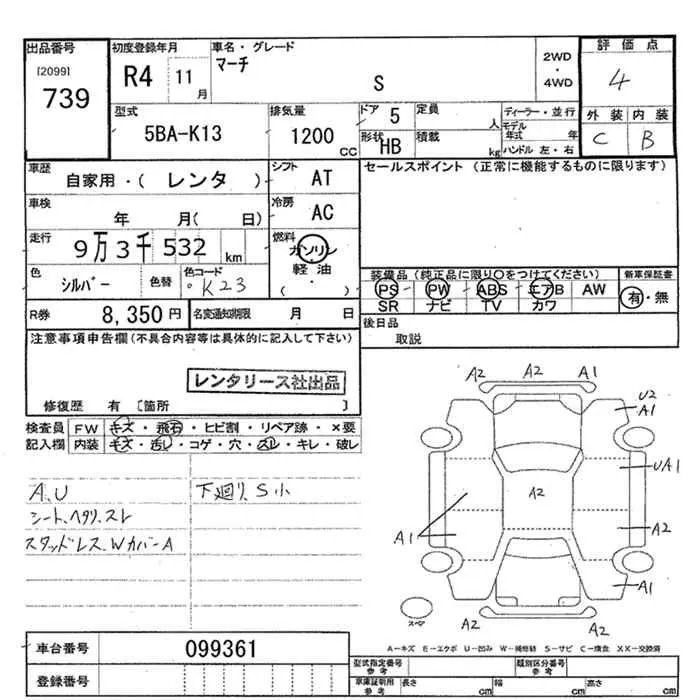 出品番号 [2099] 739
初度登録年月 R4 11月
車名・グレード マーチ S
2WD・4WD
評価点 4
外装 C 内装 B
型式 5BA-K13
排気量 1200 CC
ドア 5
定員 人
形状 HB
積載 kg
ディーラー・並行
モデル年式 年
ハンドル 左・右
車歴 自家用・( レンタ )
シフト AT
セールスポイント (正常に機能するものに限ります)
車検 年 月( 日)
冷房 AC
走行 9万3千532 km
燃料 ガソリン・軽油 ( )
色 シルバー 色替
色コード K23
装備品 (純正品に限り〇をつけてください)
PS PW ABS エアB AW
SR ナビ TV カワ
新車保証書 有・無
R券 8,350円
名変通知期限 月 日
後日品 取説
注意事項申告欄(不具合内容等は具体的に記入して下さい)
レンタリース社出品
修復歴 有 [箇所 ]
検査員記入欄
FW キズ・飛石・ヒビ割・リペア跡・×要
内装 キズ・汚レ・コゲ・穴・スレ・キレ・破レ
A、U
下廻り、S小
シート、ヘタリ、スレ
スタッドレス、WカバーA
A2 A2 A1
U2
A1
UA1
A2
A1
A2
A1
A2 A2
スペア
A-キズ E-エクボ U-凹み W-補修跡 S-サビ C-腐食 XX-交換済
車台番号 099361
登録番号
型式指定番号 参考
類別区分番号 参考
車庫証明用 参考 長さ cm 幅 cm 高さ cm